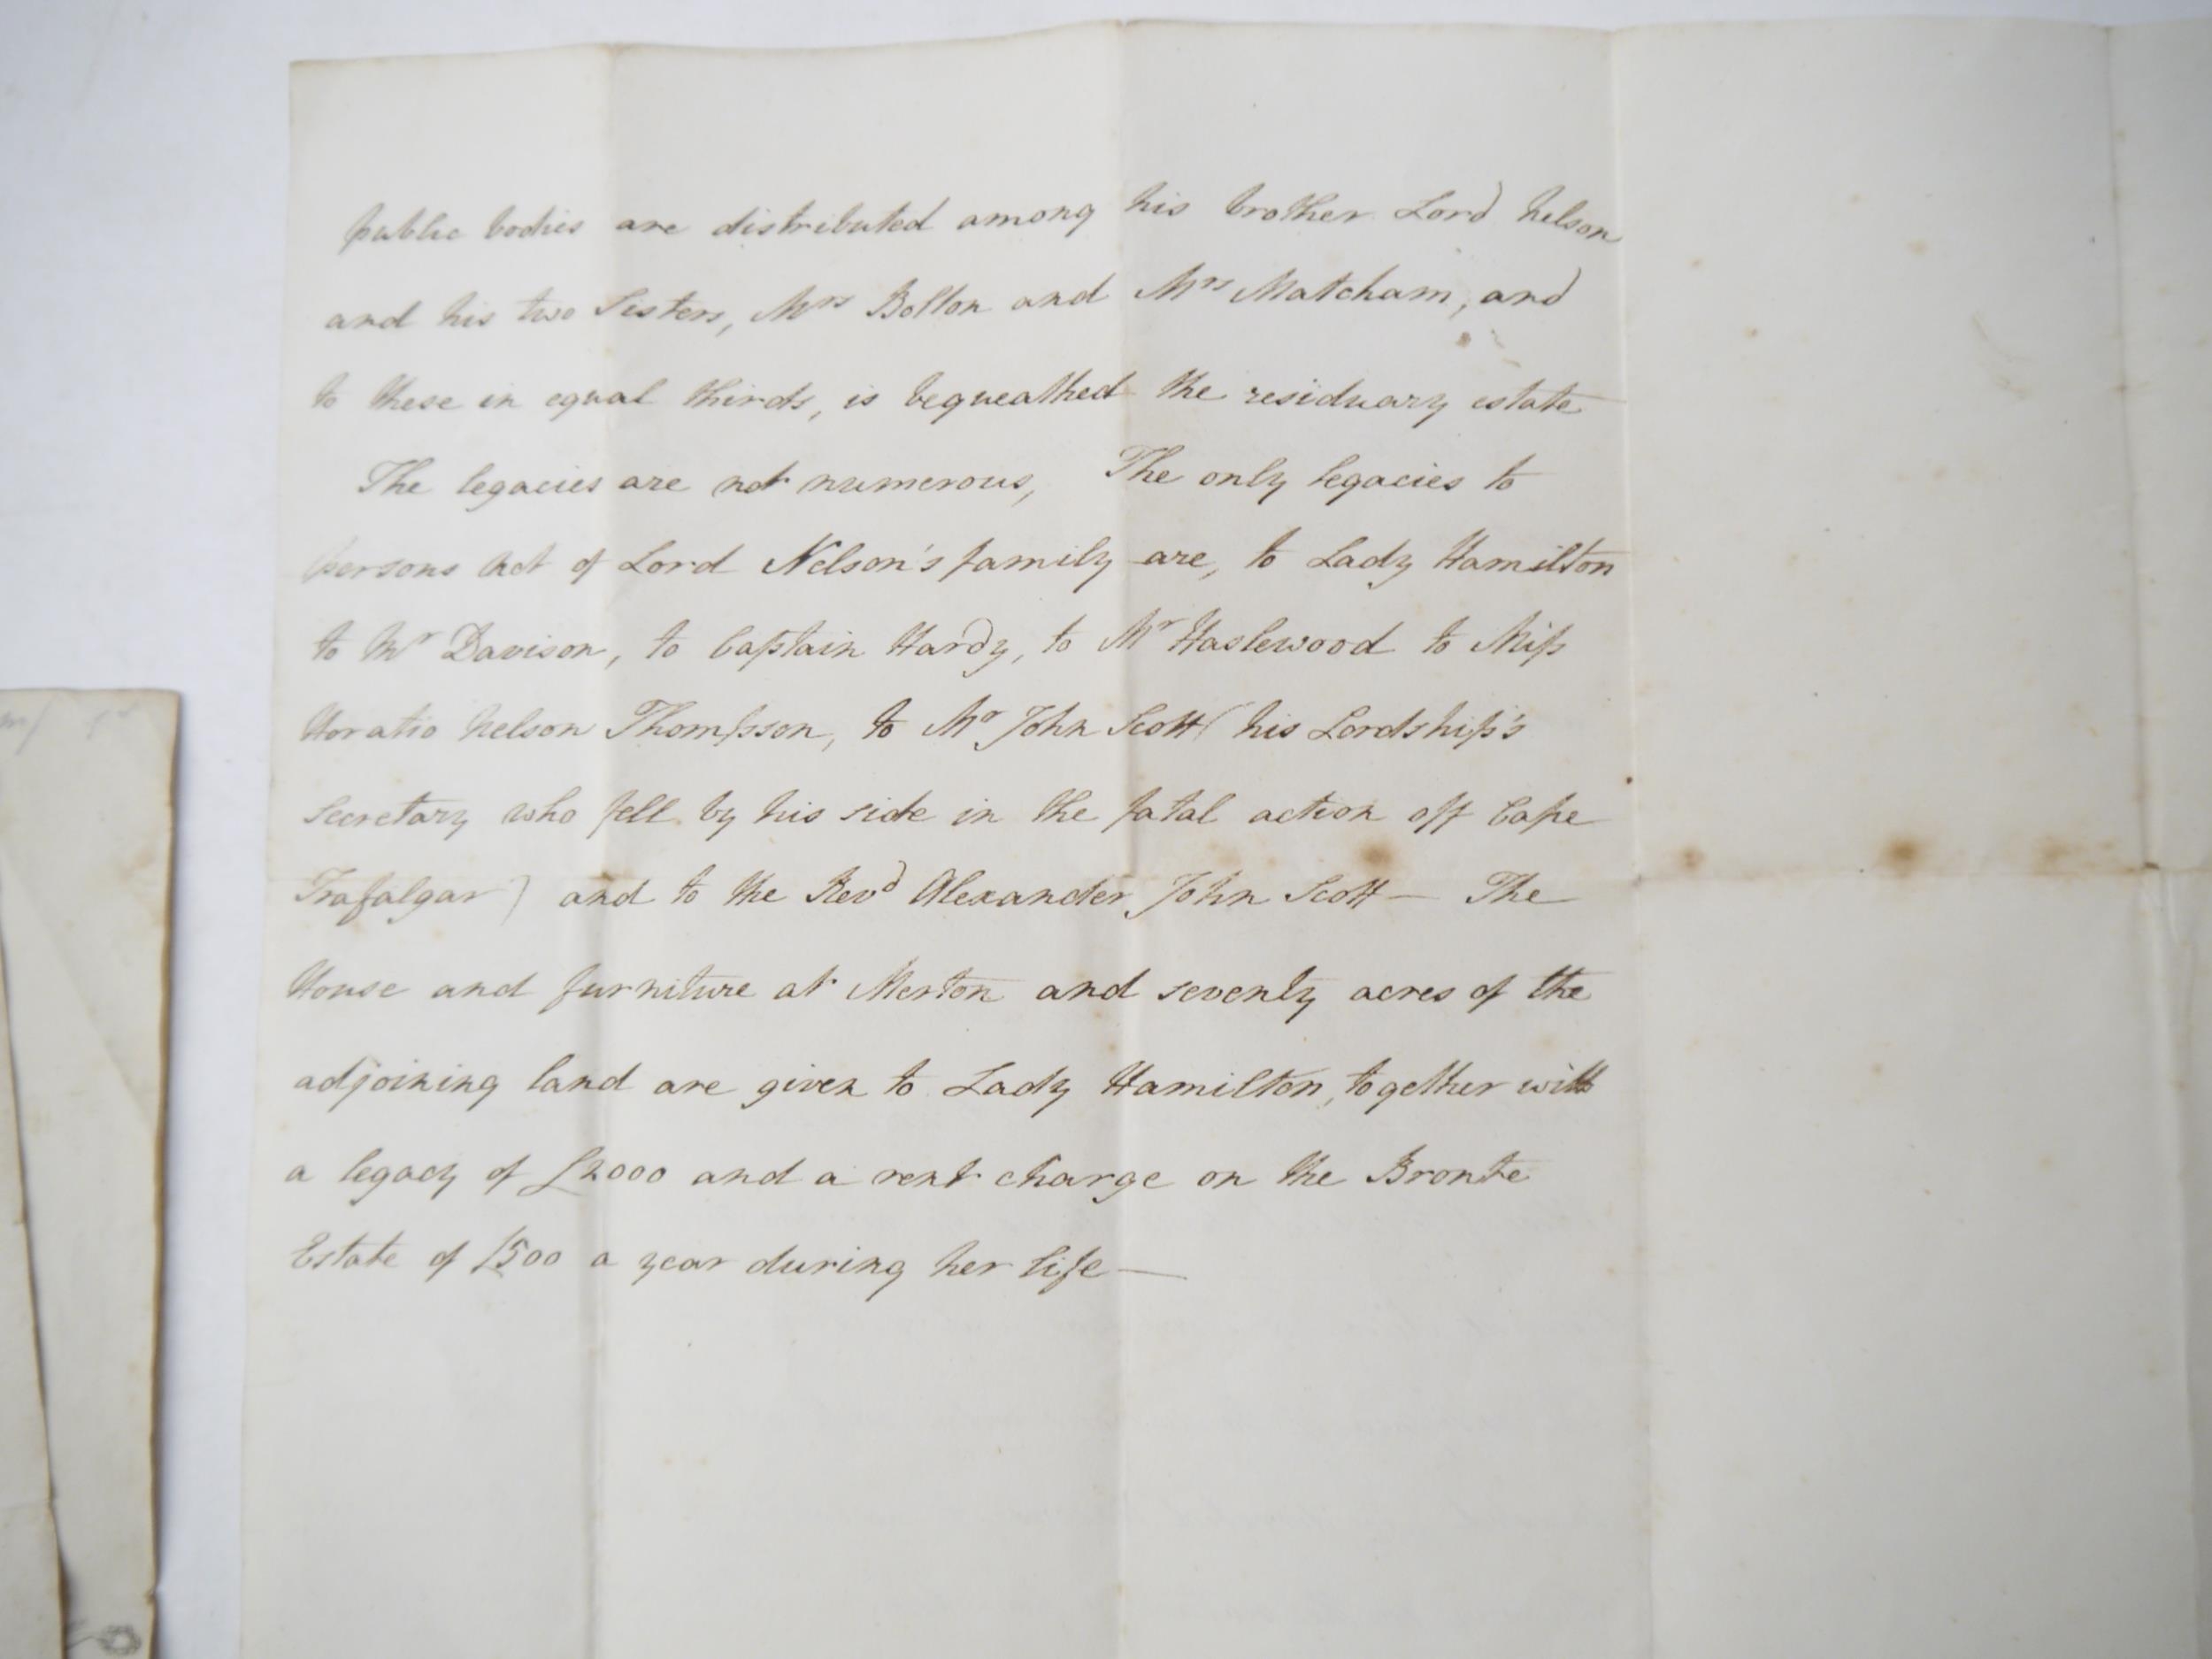 public bodies are distributed among his brother Lord Nelson
and his two Sisters, Mrs Bolton and Mrs Matcham, and
to these in equal thirds, is bequeathed the residuary estate
The legacies are not numerous, The only legacies to
persons not of Lord Nelson's family are, to Lady Hamilton
to Mr Davison, to Captain Hardy, to Mr Haslewood to Miss
Horatio Nelson Thompson, to Mr John Scott ( his Lordship's
Secretary who fell by his side in the fatal action off Cape
Trafalgar ) and to the Revd Alexander John Scott — The
House and furniture at Merton and seventy acres of the
adjoining land are given to Lady Hamilton, together with
a legacy of £2000 and a rent charge on the Bronte
Estate of £500 a year during her life —